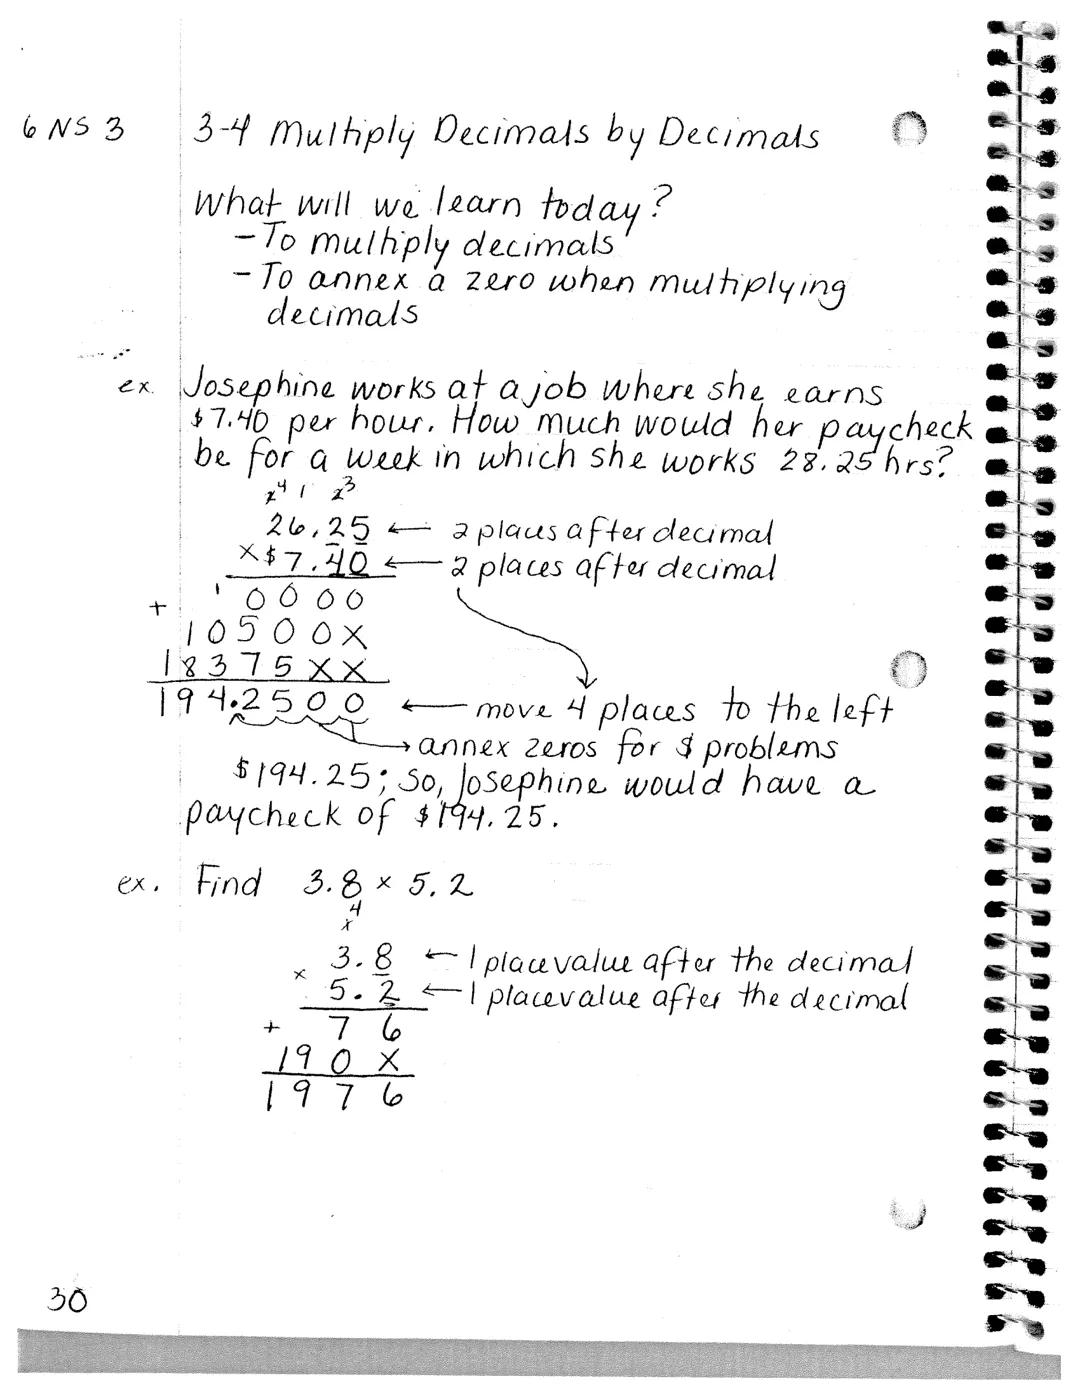 6 NS 3 3-4 Multiply Decimals by Decimals
What will we learn today?
- To multiply decimals
- To annex a zero when multiplying
decimals
ex. Josephine works at a job where she earns
$7.40 per hour. How much would her paycheck
be for a week in which she works 28.25 hrs?
2 4 1 2 3
26.25 ← 2 places after decimal
x $7.40 ← 2 places after decimal
1 0000
+
10500X
18375XX
194.2500 ← move 4 places to the left
→ annex zeros for $ problems
$194.25; so, Josephine would have a
paycheck of $194.25.
ex. Find 3.8 x 5.2
4
x
3.8 ← 1 place value after the decimal
x 5.2 ← 1 place value after the decimal
+ 76
190X
1976
30